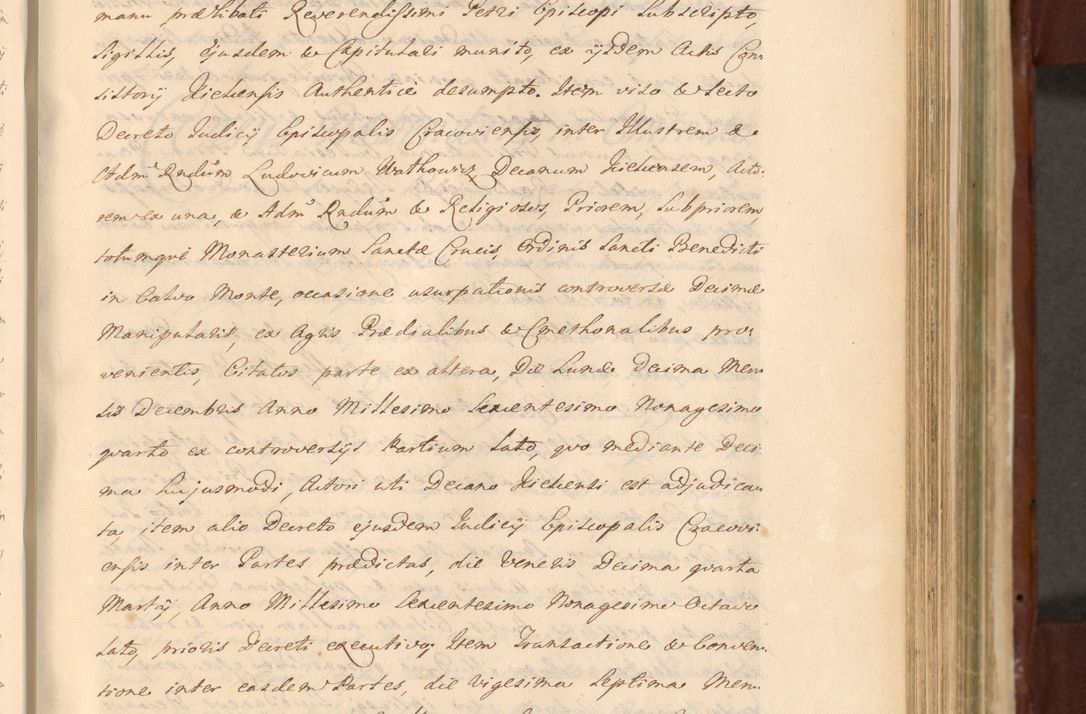 manu prælibati Reverendissimi Petri Episcopi Subscripto,
Sigillis, Ejusdem & Capitulari munito, ex ijsdem Actis Con-
sistorij Kielcensis Authenticè desumpto. Item viso & lecto
Decreto Iudicij Episcopalis Cracoviensis, inter Illustrem &
Adm. Rndum Ludovicum Wathowicz Decanum Kielcensem, Acto-
rem ex una, & Adm. Rndum & Religiosos, Priorem, Subpriorem,
totumque Monasterium Sanctæ Crucis, Ordinis Sancti Benedicti
in Calvo Monte, occasione usurpationis controversæ Decimæ
Manipularis, ex Agris Prædialibus & Cmethonalibus pro-
venientis, Citatos parte ex altera, Die Lunæ Decima Men-
sis Decembris Anno Millesimo Sexcentesimo Nonagesimo
quarto ex controversijs Partium lato, quo mediante Deci-
ma hujusmodi, Actori uti Decano Kielcensi est adjudica-
ta, item alio Decreto ejusdem Iudicij Episcopalis Cracovi-
ensis inter Partes prædictas, die Veneris Decima quarta
Martij Anno Millesimo Sexcentesimo Nonagesimo Octavo
lato, prioris Decreti executivo; Item Transactione & Conven-
tione inter easdem Partes, die Vigesima Septima Men-